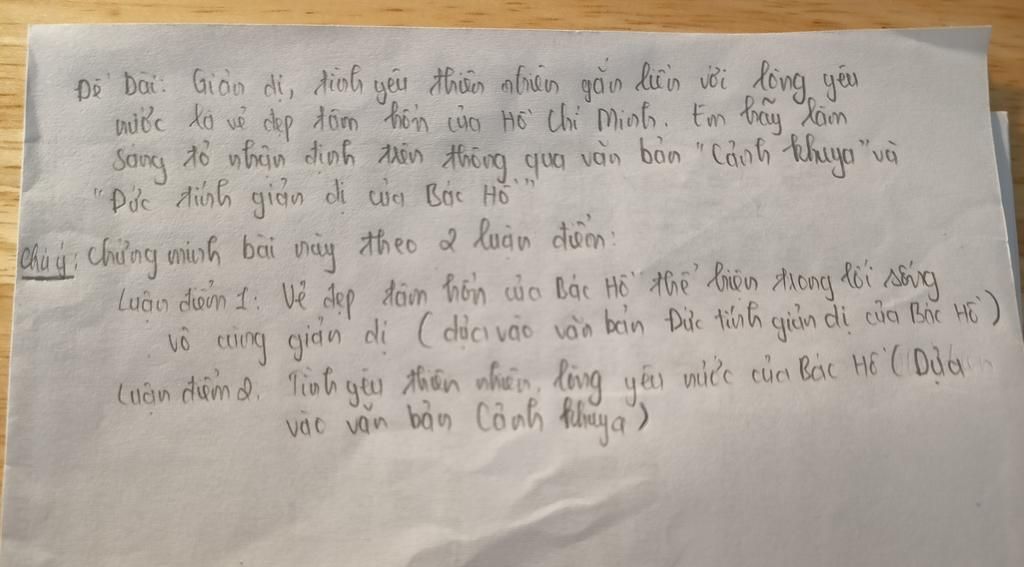 Đề bài: Giản dị, tình yêu thiên nhiên gắn liền với lòng yêu
nước là vẻ đẹp tâm hồn của Hồ Chí Minh. Em hãy làm
sáng tỏ nhận định trên thông qua văn bản "Cảnh khuya" và
"Đức tính giản dị của Bác Hồ"
Chú ý: Chứng minh bài này theo 2 luận điểm:
Luận điểm 1: Vẻ đẹp tâm hồn của Bác Hồ thể hiện trong lối sống
vô cùng giản dị (dựa vào văn bản Đức tính giản dị của Bác Hồ)
Luận điểm 2. Tình yêu thiên nhiên, lòng yêu nước của Bác Hồ (Dựa
vào văn bản Cảnh khuya)